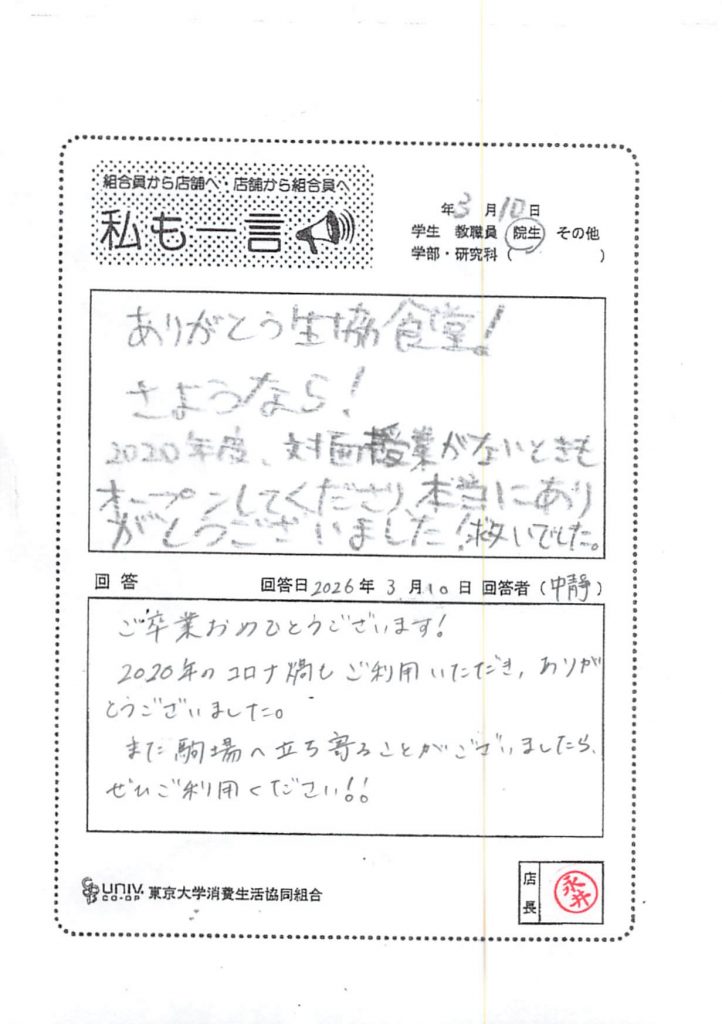 組合員から店舗へ・店舗から組合員へ
私も一言
年3月10日
学生 教職員 院生 その他
学部・研究科( )
ありがとう生協食堂!
さようなら!
2020年度、対面授業がないときも
オープンしてくださり、本当にあり
がとうございました!救いでした。
回答 回答日2026年3月10日 回答者(中靜)
ご卒業おめでとうございます!
2020年のコロナ禍もご利用いただき、ありが
とうございました。
また駒場へ立ち寄ることがございましたら、
ぜひご利用ください!!
UNIV. CO-OP 東京大学消費生活協同組合
店長
永井